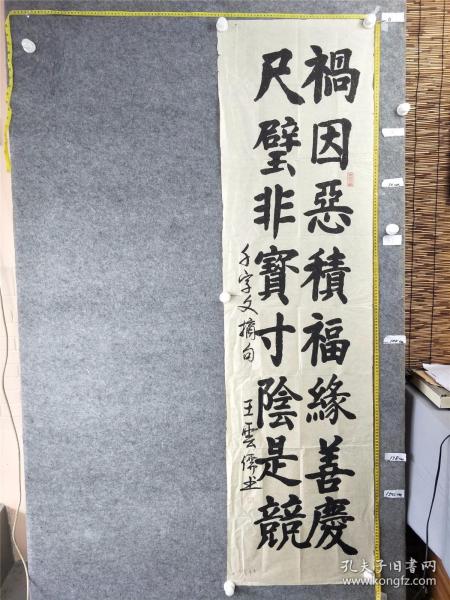 禍因惡積福緣善慶
尺璧非寶寸陰是競
千字文摘句
王雲儒书
孔夫子旧书网
www.kongfz.com